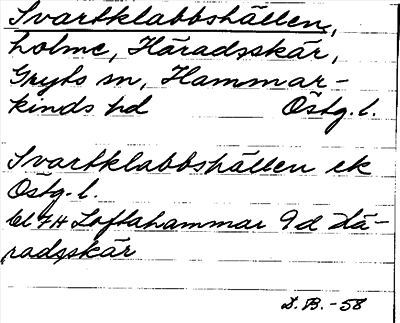 Svartklabbshällen,
holme, Häradsskär,
Gryts sn, Hammar-
kinds hd Östg. l.
Svartklabbshällen ek
Östg. l.
bl 7H Loftahammar 9d Hä-
radsskär
D. B. -58